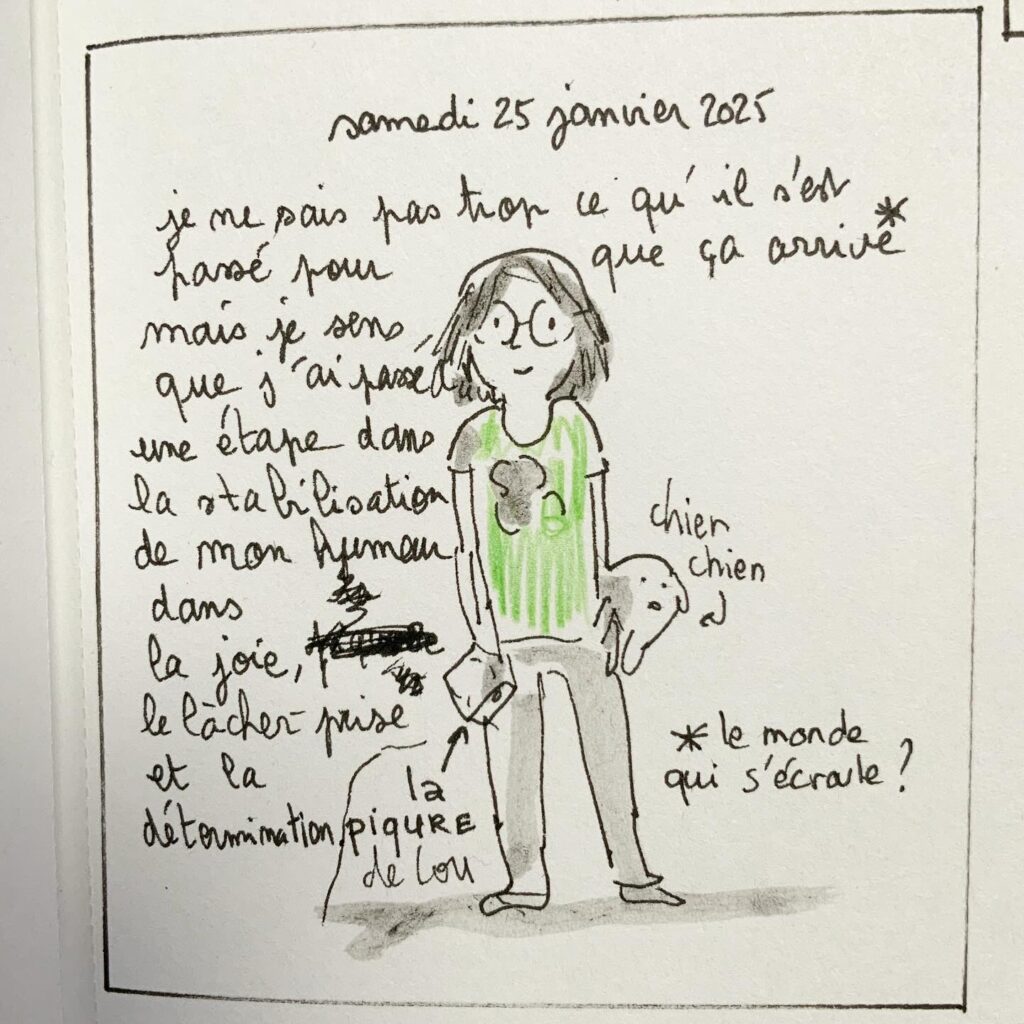 samedi 25 janvier 2025
je ne sais pas trop ce qu'il s'est
passé pour que ça arrive*
mais je sens
que j'ai passé
une étape dans
la stabilisation
de mon humeur
dans
la joie,
le lâcher-prise
et la
détermination
la
PIQURE
de Lou
chien
chien
* le monde
qui s'écroule ?